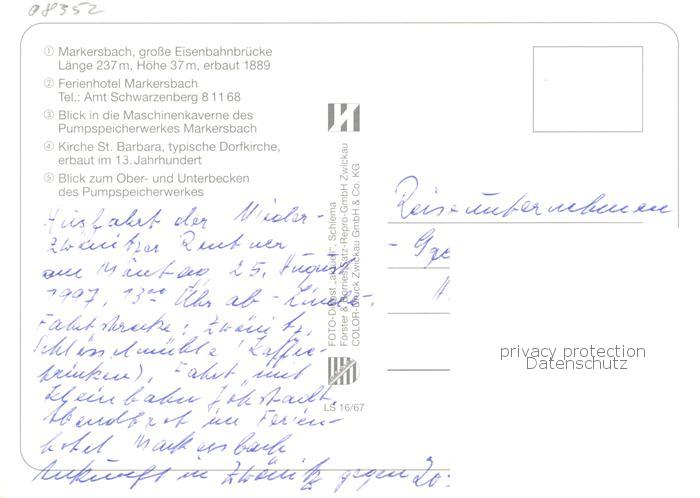 08352
① Markersbach, große Eisenbahnbrücke
Länge 237 m, Höhe 37 m, erbaut 1889
② Ferienhotel Markersbach
Tel.: Amt Schwarzenberg 8 11 68
③ Blick in die Maschinenkaverne des
Pumpspeicherwerkes Markersbach
④ Kirche St. Barbara, typische Dorfkirche,
erbaut im 13. Jahrhundert
⑤ Blick zum Ober- und Unterbecken
des Pumpspeicherwerkes
Ausfahrt der Nieder-
zwönitzer Rentner
am Montag 25. August
1997, 13⁰⁰ Uhr ab
Fahrtstrecke: Zwönitz,
Schlösselmühle (Kaffee-
trinken), Fahrt mit
Kleinbahn Jöhstadt,
Abendbrot im Ferien-
hotel Markersbach
Ankunft in Zwönitz gegen 20:
FOTO-Dienst „aktuell", Schlema
Förster & Borries/Satz-Repro-GmbH Zwickau
COLOR-Druck Zwickau GmbH & Co. KG
LS 16/67
Reiseunternehmen
privacy protection
Datenschutz